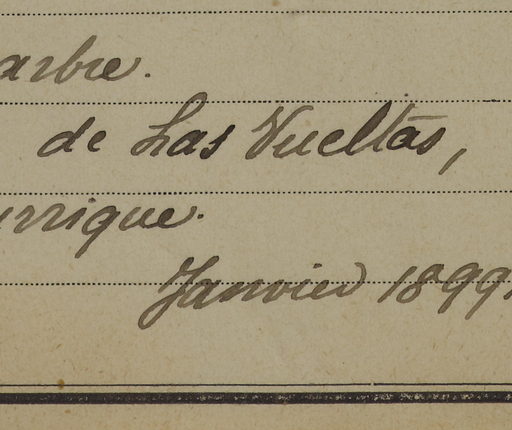 arbre.
de Las Vueltas,
urrique.
Janvier 1899.